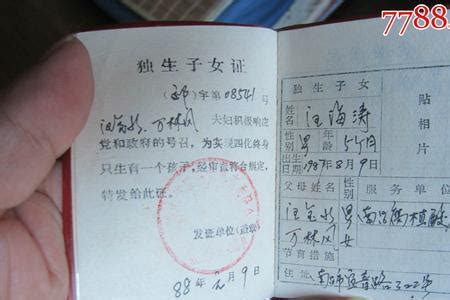 7788
独生子女证
字第08541号
万林风 夫妇积极响应
党和政府的号召，为实现四化终身
只生有一个孩子，经审查符合规定，
特发给此证。
发证单位（盖章）
88年2月9日
独生子女
姓名 汪海涛
性别 男 5个月
出生日期 1987年8月9日
贴相片
父母姓名 性别 服务单位
男
万林风 女
节育措施
住址